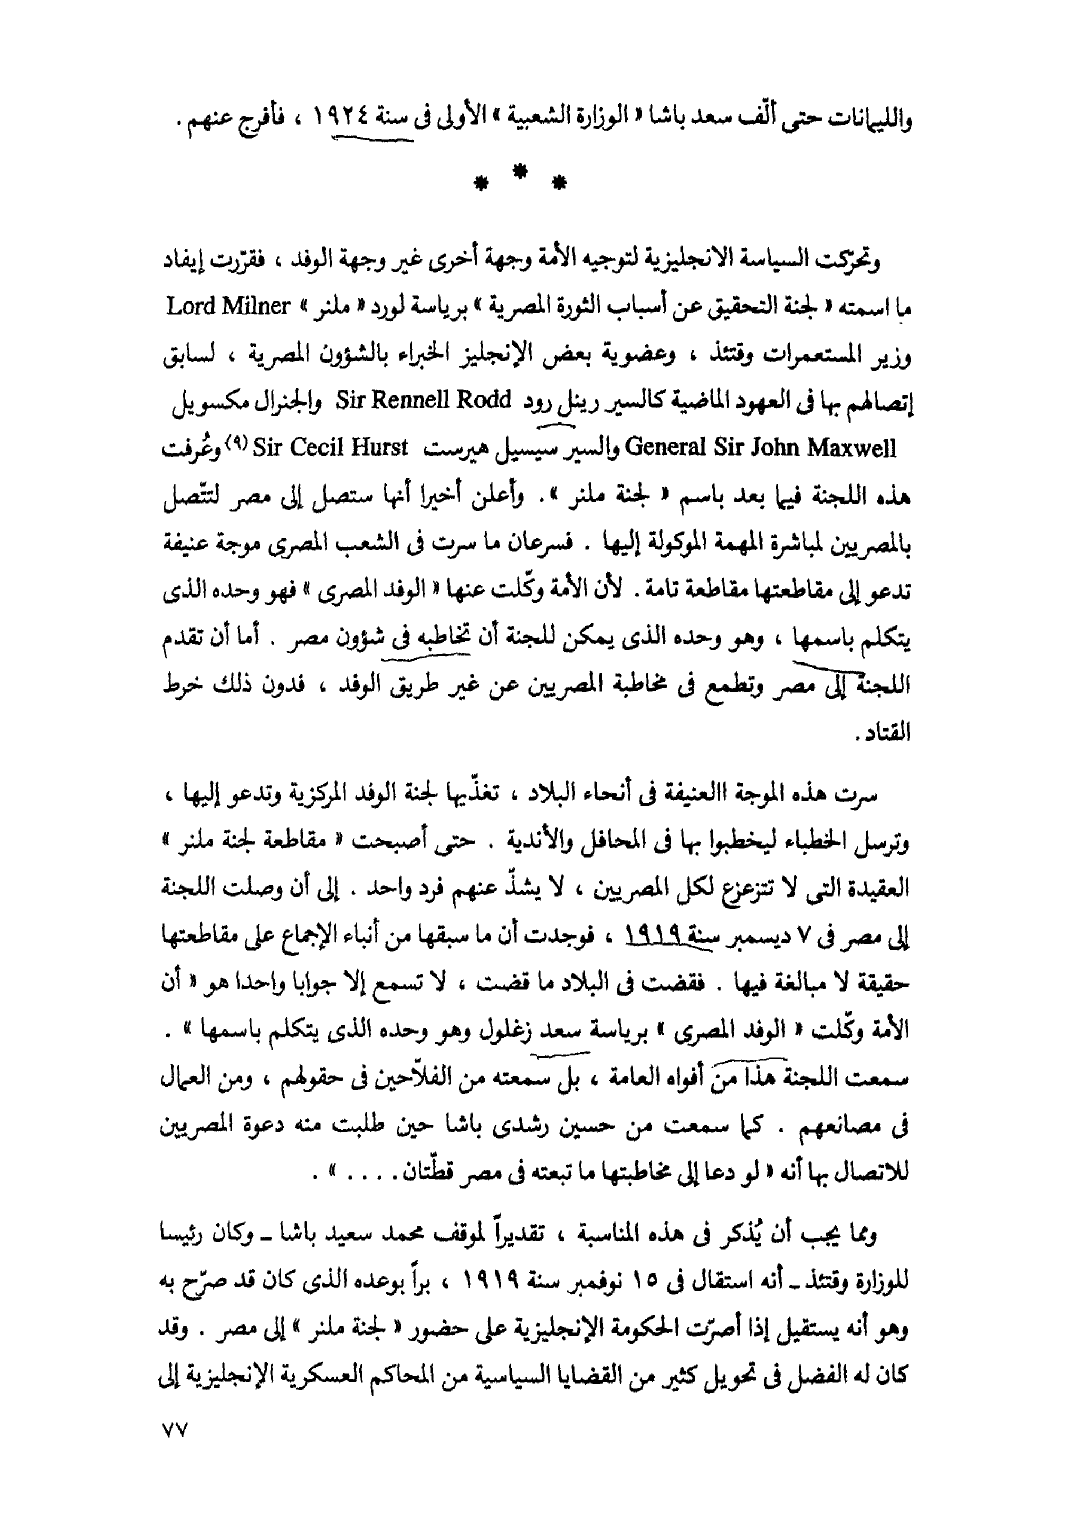 والليمانات حتى ألّف سعد باشا « الوزارة الشعبية » الأولى فى سنة ١٩٢٤ ، فأفرج عنهم .
* * *
وتحرّكت السياسة الانجليزية لتوجيه الأمة وجهة أخرى غير وجهة الوفد ، فقرّرت إيفاد
ما اسمته « لجنة التحقيق عن أسباب الثورة المصرية » برياسة لورد « ملنر » Lord Milner
وزير المستعمرات وقتئذ ، وعضوية بعض الإنجليز الخبراء بالشؤون المصرية ، لسابق
إتصالهم بها فى العهود الماضية كالسير رينل رود Sir Rennell Rodd والجنرال مكسويل
General Sir John Maxwell والسير سيسيل هيرست Sir Cecil Hurst (٩) وعُرفت
هذه اللجنة فيما بعد باسم « لجنة ملنر » . وأعلن أخيرا أنها ستصل إلى مصر لتتّصل
بالمصريين لمباشرة المهمة الموكولة إليها . فسرعان ما سرت فى الشعب المصرى موجة عنيفة
تدعو إلى مقاطعتها مقاطعة تامة . لأن الأمة وكّلت عنها « الوفد المصرى » فهو وحده الذى
يتكلم باسمها ، وهو وحده الذى يمكن للجنة أن تخاطبه فى شؤون مصر . أما أن تقدم
اللجنة إلى مصر وتطمع فى مخاطبة المصريين عن غير طريق الوفد ، فدون ذلك خرط
القتاد .
سرت هذه الموجة االعنيفة فى أنحاء البلاد ، تغذّيها لجنة الوفد المركزية وتدعو إليها ،
وترسل الخطباء ليخطبوا بها فى المحافل والأندية . حتى أصبحت « مقاطعة لجنة ملنر »
العقيدة التى لا تتزعزع لكل المصريين ، لا يشذّ عنهم فرد واحد . إلى أن وصلت اللجنة
إلى مصر فى ٧ ديسمبر سنة ١٩١٩ ، فوجدت أن ما سبقها من أنباء الإجماع على مقاطعتها
حقيقة لا مبالغة فيها . فقضت فى البلاد ما قضت ، لا تسمع إلا جوابا واحدا هو « أن
الأمة وكّلت « الوفد المصرى » برياسة سعد زغلول وهو وحده الذى يتكلم باسمها » .
سمعت اللجنة هذا من أفواه العامة ، بل سمعته من الفلاّحين فى حقولهم ، ومن العمال
فى مصانعهم . كما سمعت من حسين رشدى باشا حين طلبت منه دعوة المصريين
للاتصال بها أنه « لو دعا إلى مخاطبتها ما تبعته فى مصر قطّتان . . . . » .
ومما يجب أن يُذكر فى هذه المناسبة ، تقديراً لموقف محمد سعيد باشا ـ وكان رئيسا
للوزارة وقتئذ ـ أنه استقال فى ١٥ نوفمبر سنة ١٩١٩ ، براً بوعده الذى كان قد صرّح به
وهو أنه يستقيل إذا أصرّت الحكومة الإنجليزية على حضور « لجنة ملنر » إلى مصر . وقد
كان له الفضل فى تحويل كثير من القضايا السياسية من المحاكم العسكرية الإنجليزية إلى
٧٧